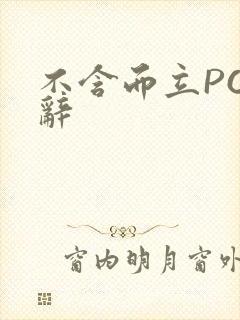 不含而立PO
辭
窗内明月窗外